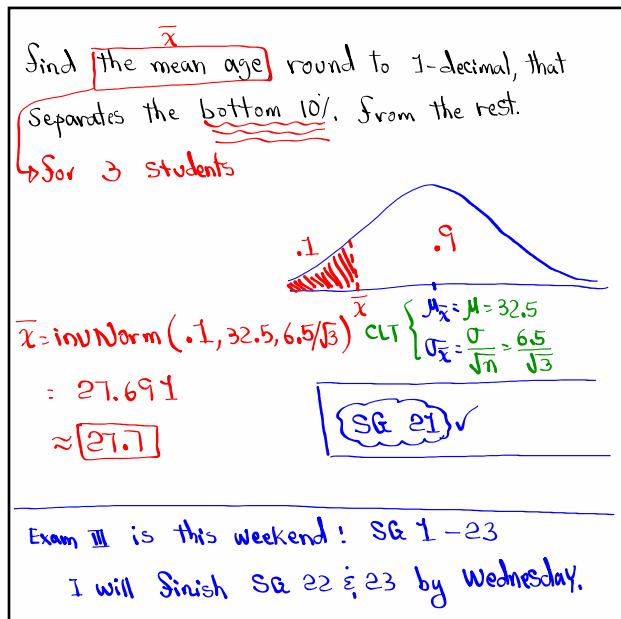 x̄
find the mean age round to 1-decimal, that
separates the bottom 10%. from the rest.
for 3 students
.1 .9
x̄
x̄ = invNorm(.1, 32.5, 6.5/√3)
= 27.691
≈ 27.7
CLT { μx̄ = μ = 32.5
σx̄ = σ/√n = 6.5/√3
SG 21 ✓
Exam III is this weekend! SG 1-23
I will finish SG 22 & 23 by Wednesday.